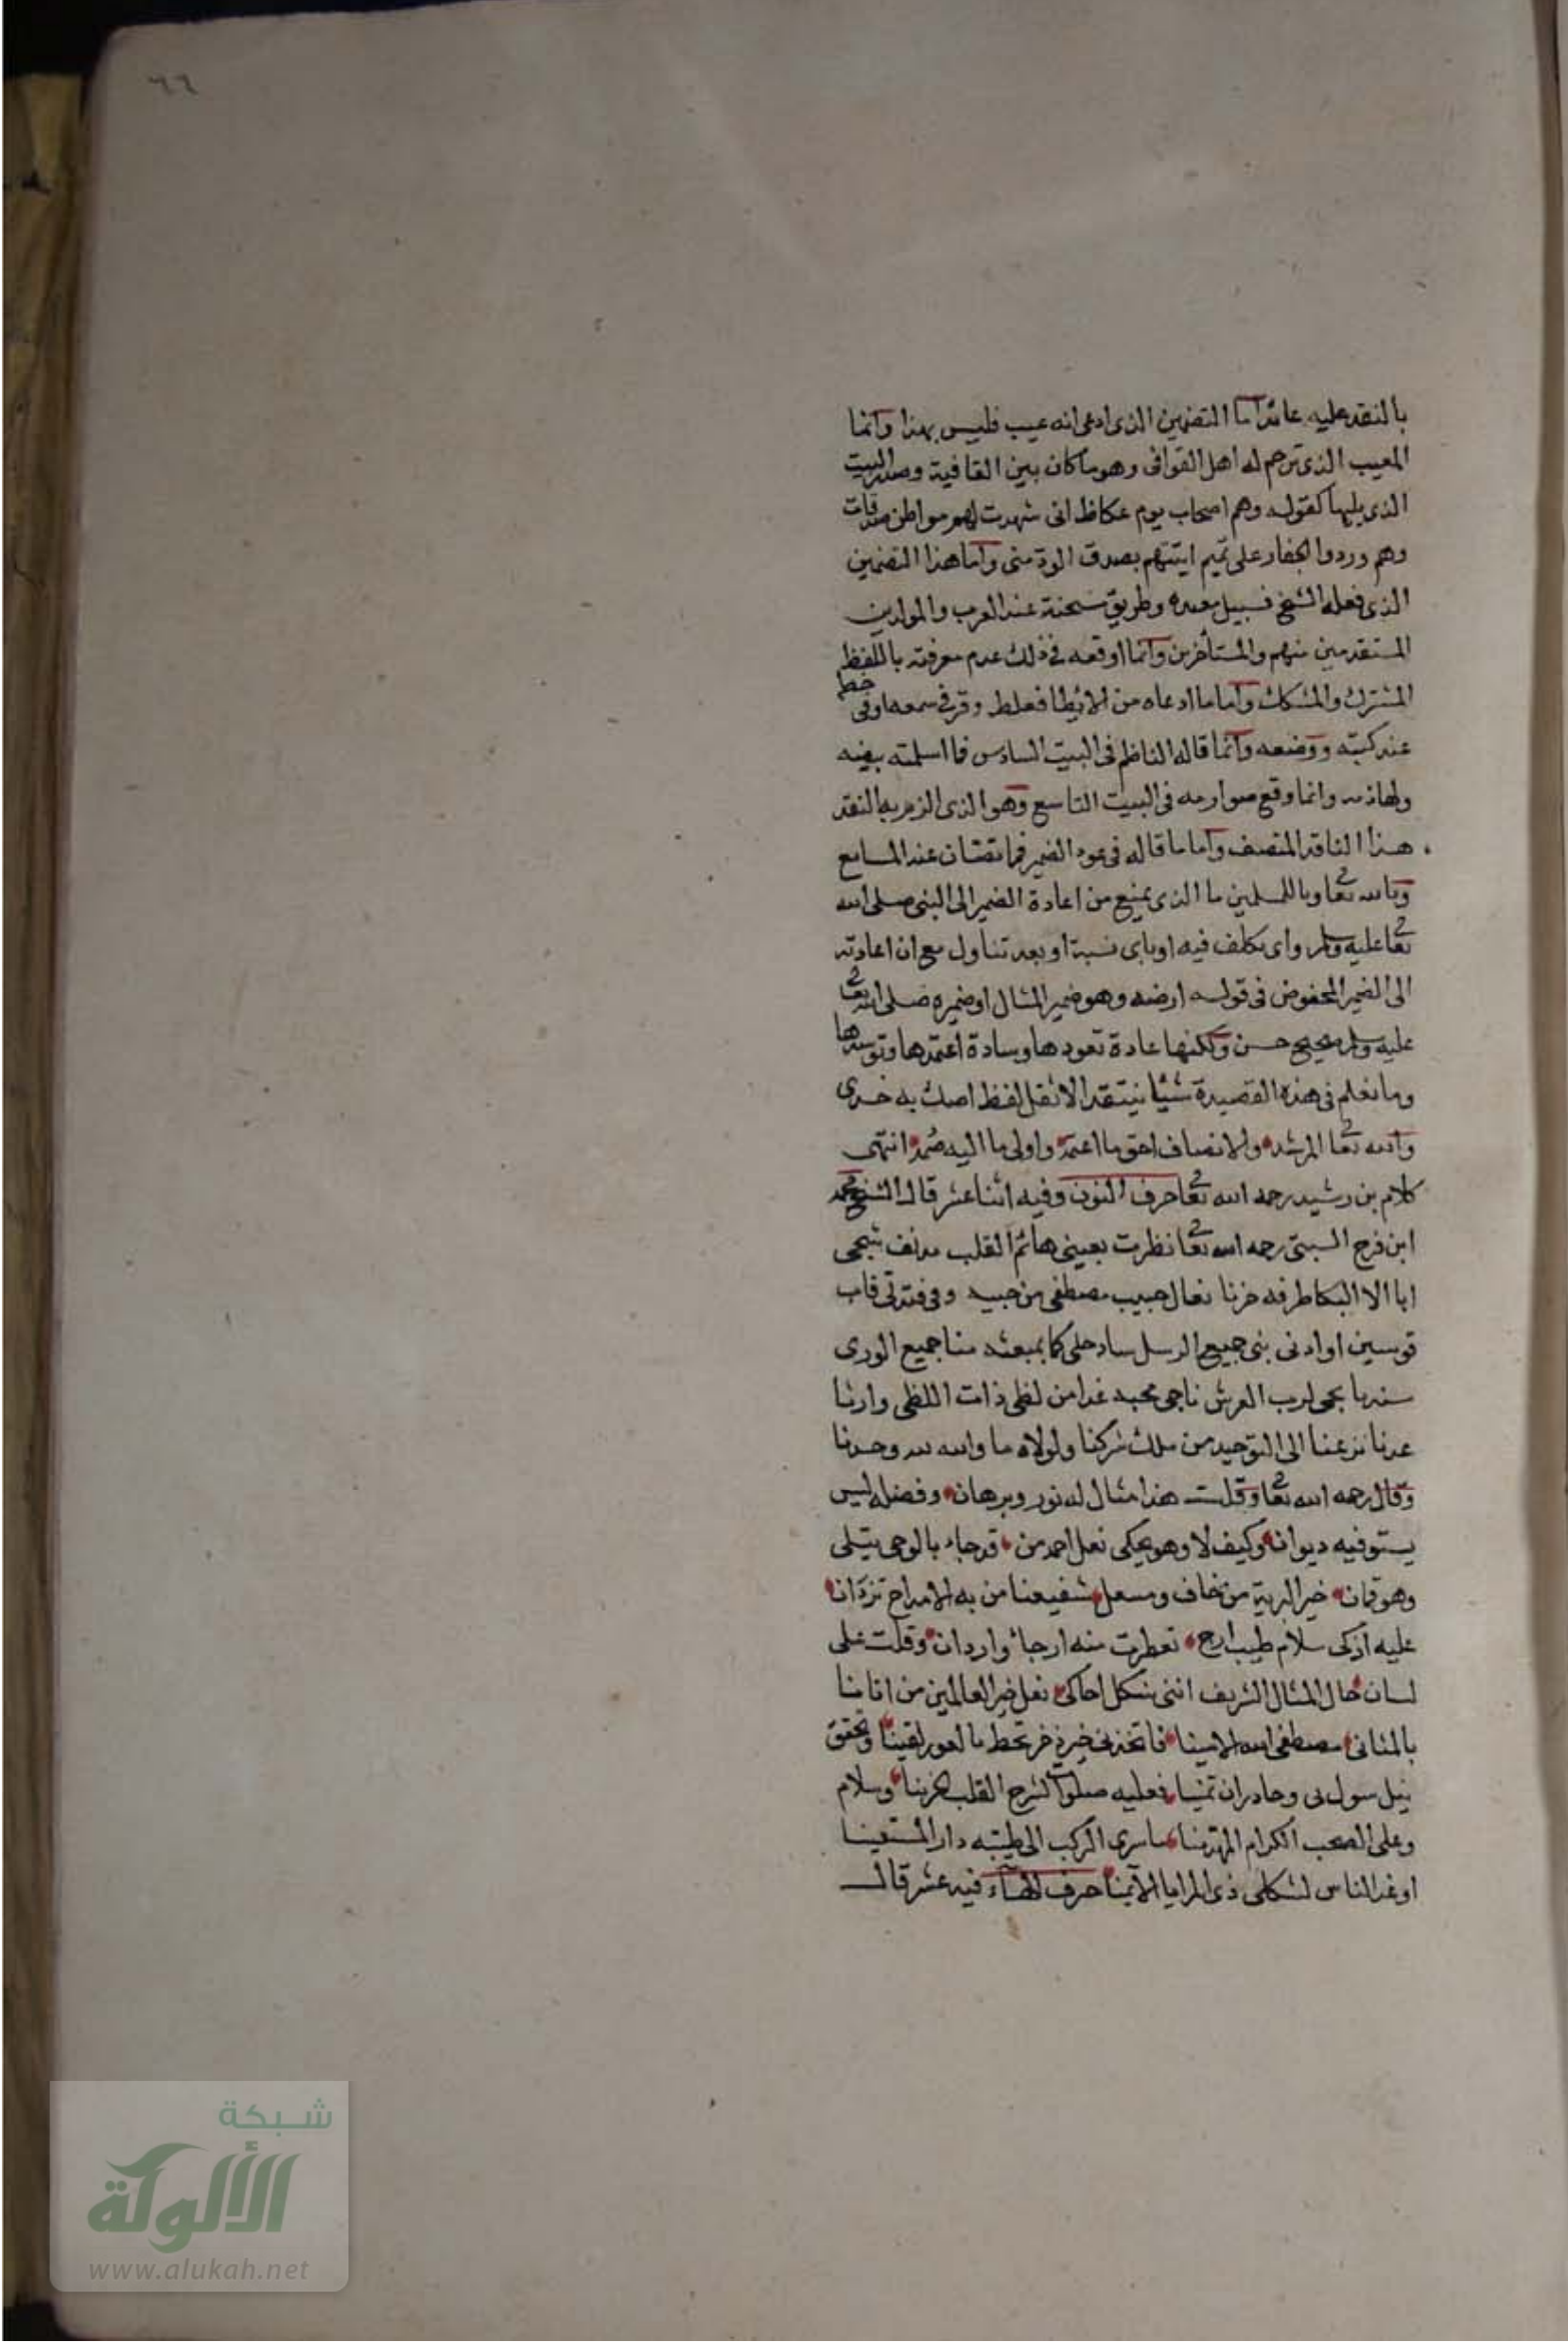 ٦٦
بالنقد عليه عائدا اما التضمين الذى ادعى انه عيب فليس بهذا وانما
المعيب الذى ترجم له اهل القوافى وهو ما كان بين القافية وصدر البيت
الذى يليها كقوله وهم اصحاب يوم عكاظ انى شهدت لهم مواطن صدقات
وهم وردوا الجفار على تميم اتيتهم بصدق الود منى واما هذا التضمين
الذى فعله الشيخ فسبيل معبده وطريق عند العرب والمولدين
المتقدمين منهم والمتأخرين وانما اوقعه فى ذلك عدم معرفته باللفظ
المشترك والمشكك واما ما ادعاه من الايطا فغلط وقر فى سمعه اوفى خط
عند كتبه ووضعه وانما قاله الناظم فى البيت السادس فما اسلمته بيضه
ولهاذمه وانما وقع صوارمه فى البيت التاسع وهو الذى الزم به النقد
هذا الناقد المنصف واما ما قاله فى عود الضمير فما عند السامع
وبالله تعا وياللمسلمين ما الذى يمنع من اعادة الضمير الى النبى صلى الله
تعا عليه وسلم واى تكلف فيه او باى نسبة او بعد تناول مع ان اعادته
الى الضمير المخفوض فى قوله ارضه وهو ضمير المثال او ضميره صلى الله تعا
عليه وسلم صحيح حسن ولكنها عادة تعودها وسادة اعتمدها وتوسدها
وما نعلم فى هذه القصيدة شيئا ينتقد الا ثقل لفظ اصك به خدى
والله تعا المرشد والانصاف احق ما اعتمد واولى ما اليه صُمد انتهى
كلام بن رشيد رحمه الله تعا حرف النون وفيه اثنا عشر قال الشيخ محمد
ابن فرج السبتى رحمه الله تعا نظرت بعينى هائم القلب مدنف شجى
ابا الا البكا طرفه حزنا نعال حبيب مصطفى من حبيبه وفى قاب
قوسين او ادنى نبى جميع الرسل ساد حلى كما بمبعثه منا جميع الورى
سدنا نجى لرب العرش ناجى محبه غدا من لظى ذات اللظى وارثا
عدنا نزعنا الى التوحيد من ملك شركنا ولولاه ما والله لله وحدنا
وقال رحمه الله تعا وقلت هذا مثال له نور وبرهان وفضله ليس
يستوفيه ديوان وكيف لا وهو يحكى نعل احمد من قد جاء بالوحى يتلى
وهو قران خير البرية من حاف ومنتعل شفيعنا من به الامداح تزدان
عليه ازكى سلام طيب ارج تعطرت منه ارجاء واردان وقلت على
لسان حال المثال الشريف اننى شكل احاكى نعل خير العالمين من اتانا
بالمثانى مصطفى الله الامينا فاتخذنى خير ذخر تحظ بالفوز يقينا وتحقق
نيل سول بى وحاذر ان تمينا فعليه صلوات تشرح القلب الحزينا وسلام
وعلى الصحب الكرام المهتدينا ما سرى الركب الى طيبة دار المتقينا
او غدا الناس لشكلى ذى المزايا لاثمينا حرف الهاء فيه عشر قال
شبكة
الألوكة
www.alukah.net